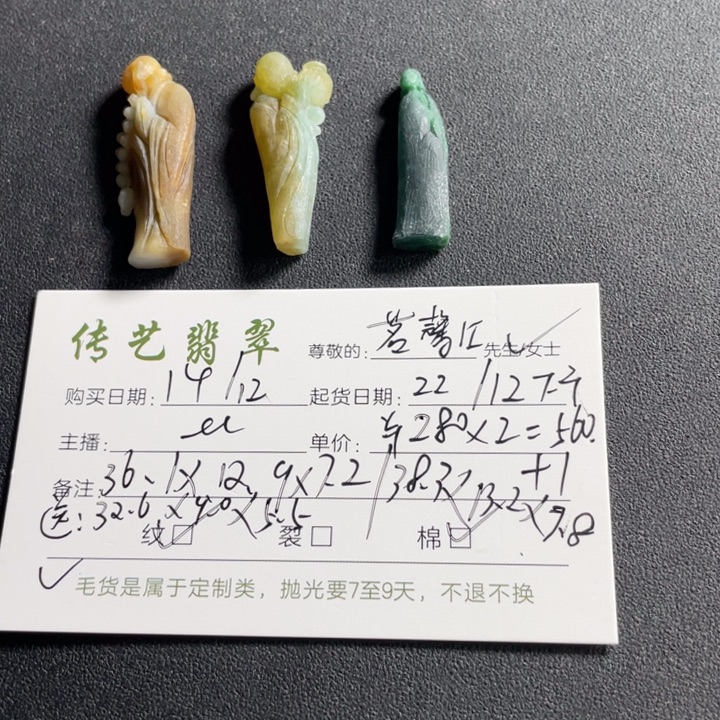 传艺翡翠
尊敬的: 茗馨江 先生/女士
购买日期: 14/12 起货日期: 22/12
主播: 单价: 每280×2=560.
备注: 36.1×12.9×7.2/38.3×13.2×7.8 +1
送: 32.6×9.0×5.5
纹☑ 裂□ 棉☑
✓ 毛货是属于定制类，抛光要7至9天，不退不换